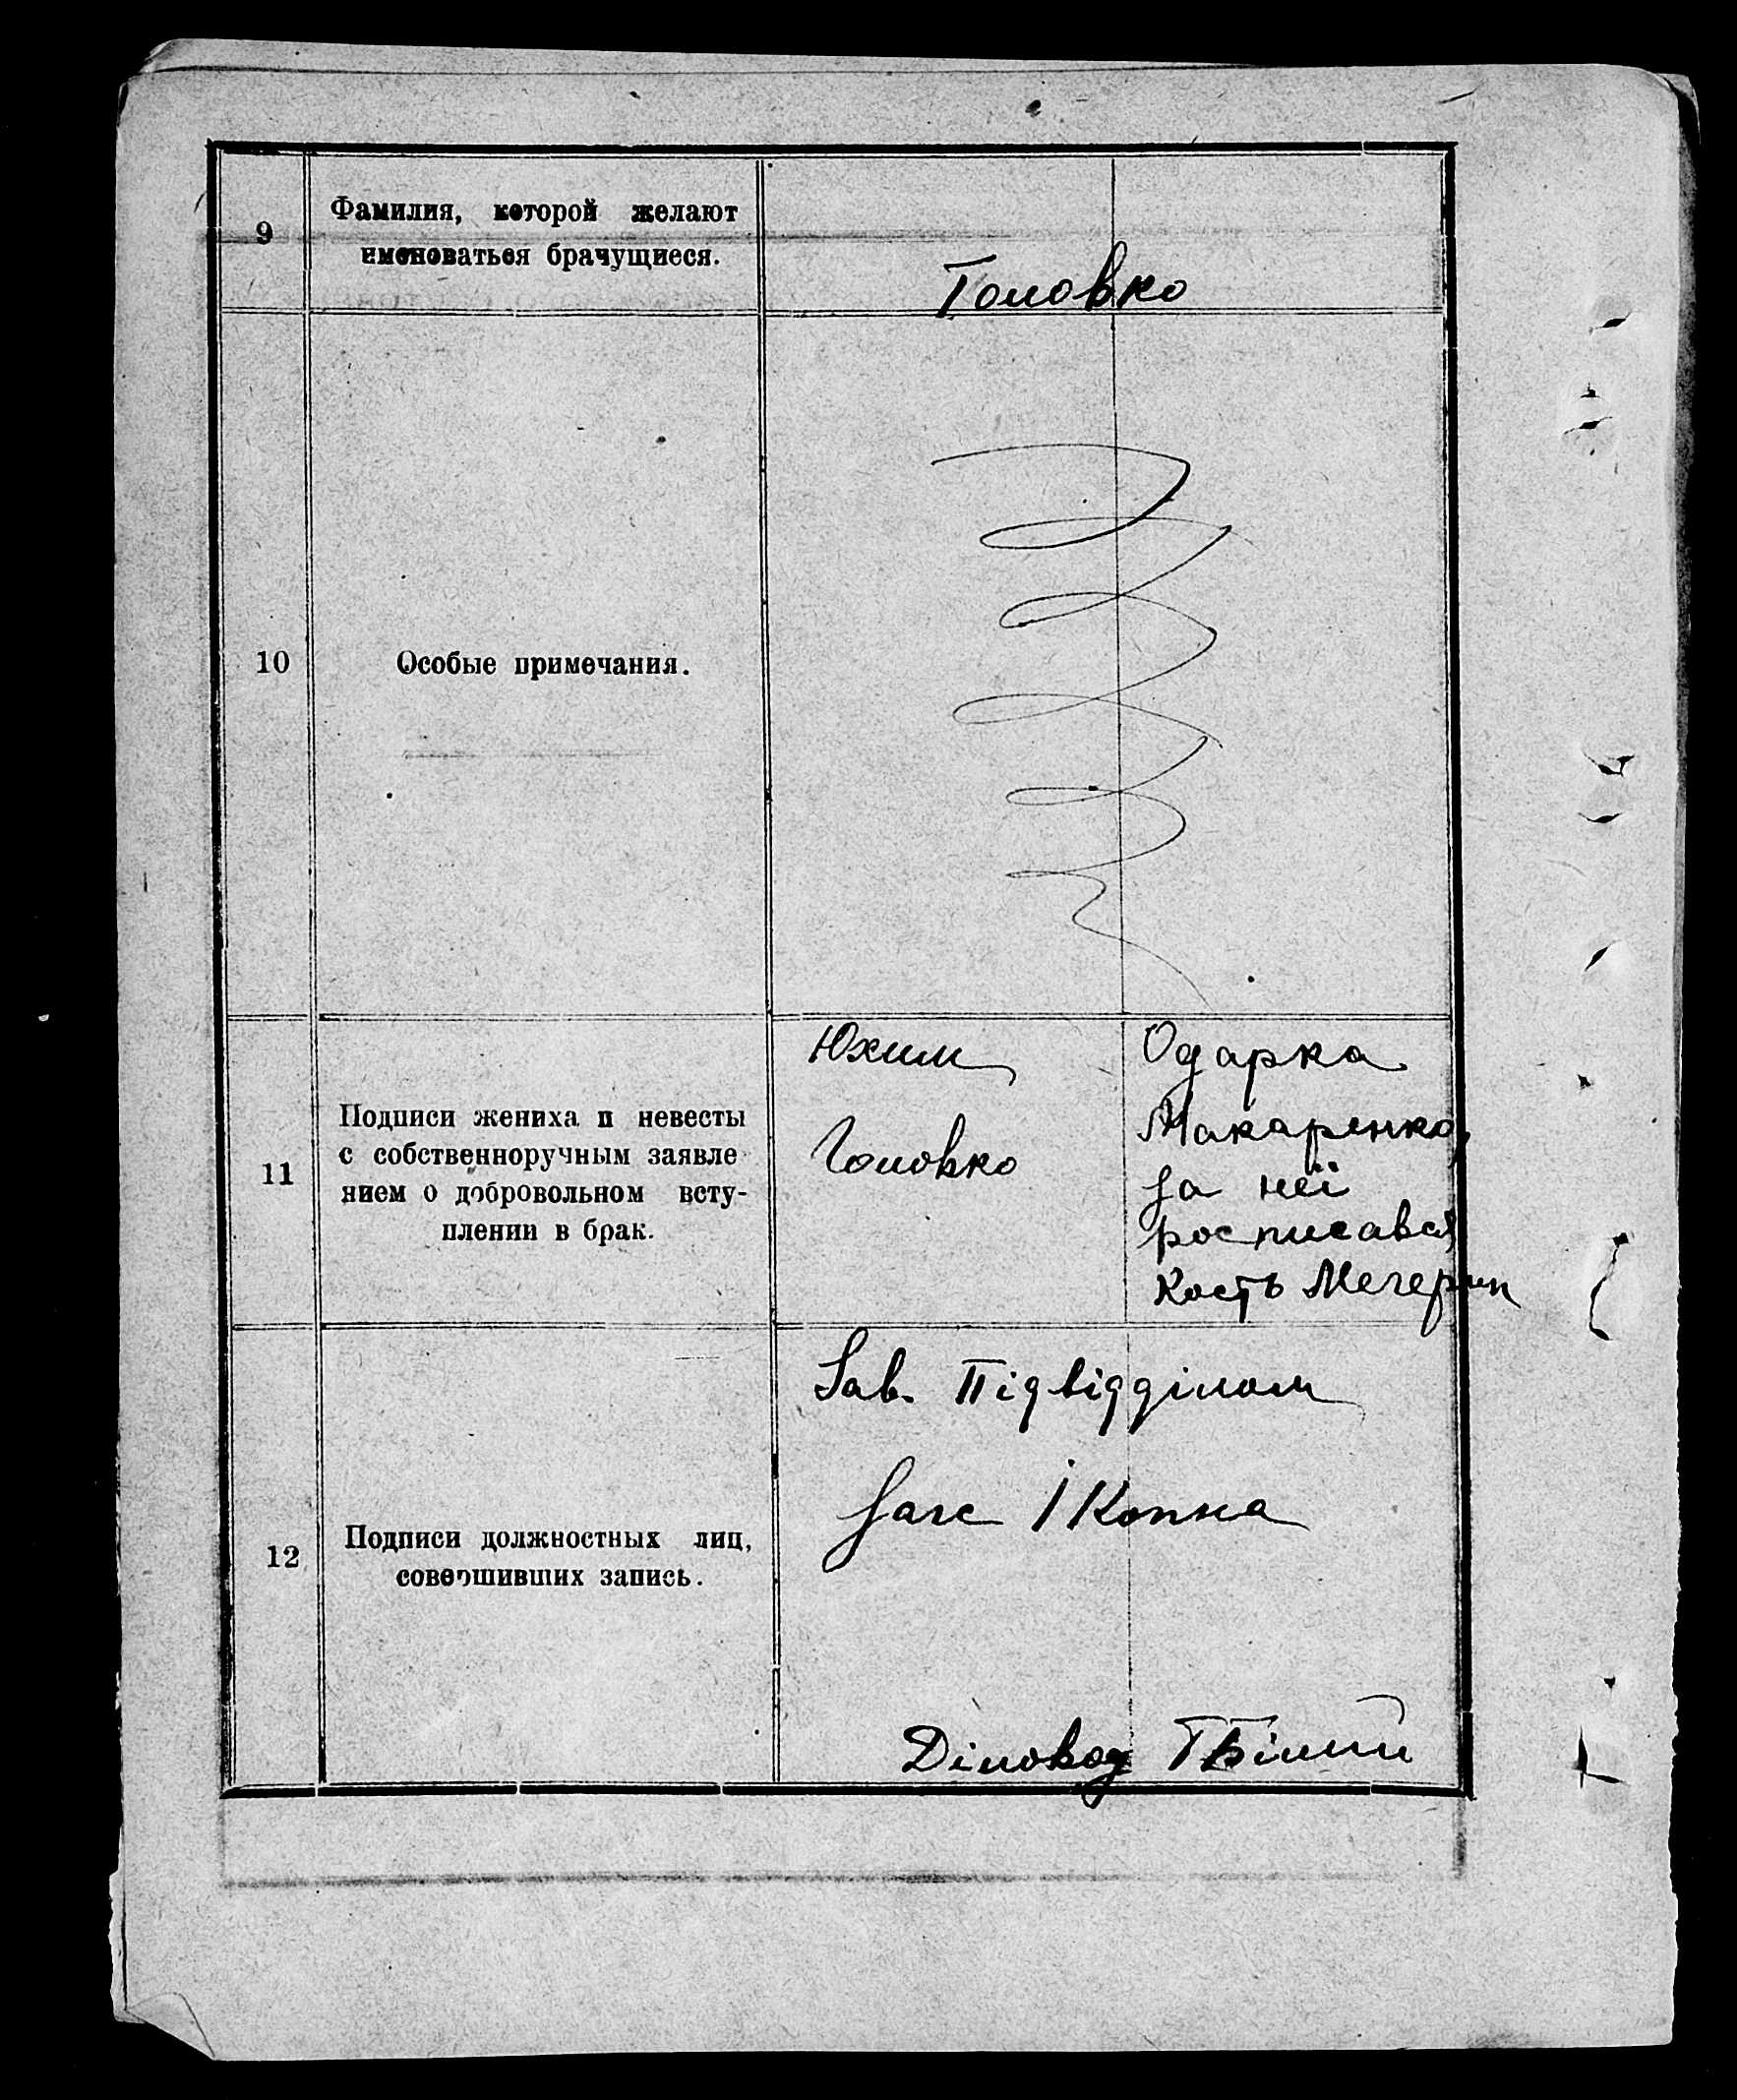 9
Фамилия, которой желают
именоваться брачущиеся.
Головко
10
Особые примечания.
11
Подписи жениха и невесты
с собственноручным заявле
нием о добровольном всту-
плении в брак.
Юхим
Головко
Одарка
Макаренко,
за неї
росписався
Кость Мечерин
12
Подписи должностных лиц,
совершивших запись.
Зав. Підвідділом
Загс ІКопна
Діловод ГБілий